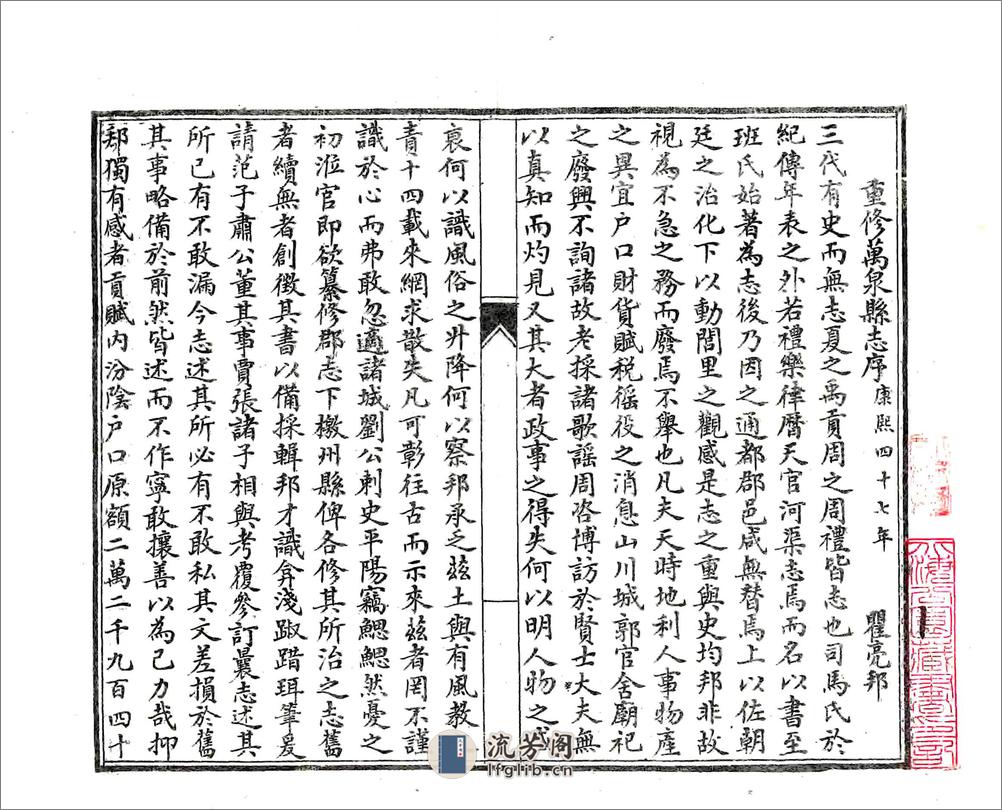 重修萬泉縣志序 康熙四十七年 瞿亮邦
三代有史而無志夏之禹貢周之周禮皆志也司馬氏於
紀傳年表之外若禮樂律曆天官河渠志焉而名以書至
班氏始著為志後乃因之通都郡邑咸無替焉上以佐朝
廷之治化下以動閭里之觀感是志之重與史均邦非故
視為不急之務而廢焉不舉也凡夫天時地利人事物產
之異宜戶口財貨賦稅徭役之消息山川城郭官舍廟祀
之廢興不詢諸故老採諸歌謠周咨博訪於賢士大夫無
以真知而灼見又其大者政事之得失何以明人物之盛
衰何以識風俗之升降何以察邦承乏茲土與有風教之
責十四載來網求散失凡可彰往古而示來茲者罔不謹
識於心而弗敢忽適諸城劉公刺史平陽竊鰓鰓然憂之
初涖官即欲纂修郡志下檄州縣俾各修其所治之志舊
者續無者創徵其書以備採輯邦才識弇淺踧踖珥筆爰
請范子肅公董其事賈張諸子相與考覆參訂曩志述其
所已有不敢漏今志述其所必有不敢私其文差損於舊
其事略備於前然皆述而不作寧敢攘善以為己力哉抑
邦獨有感者貢賦內汾陰戶口原額二萬二千九百四十
流芳閣
lfglib.cn